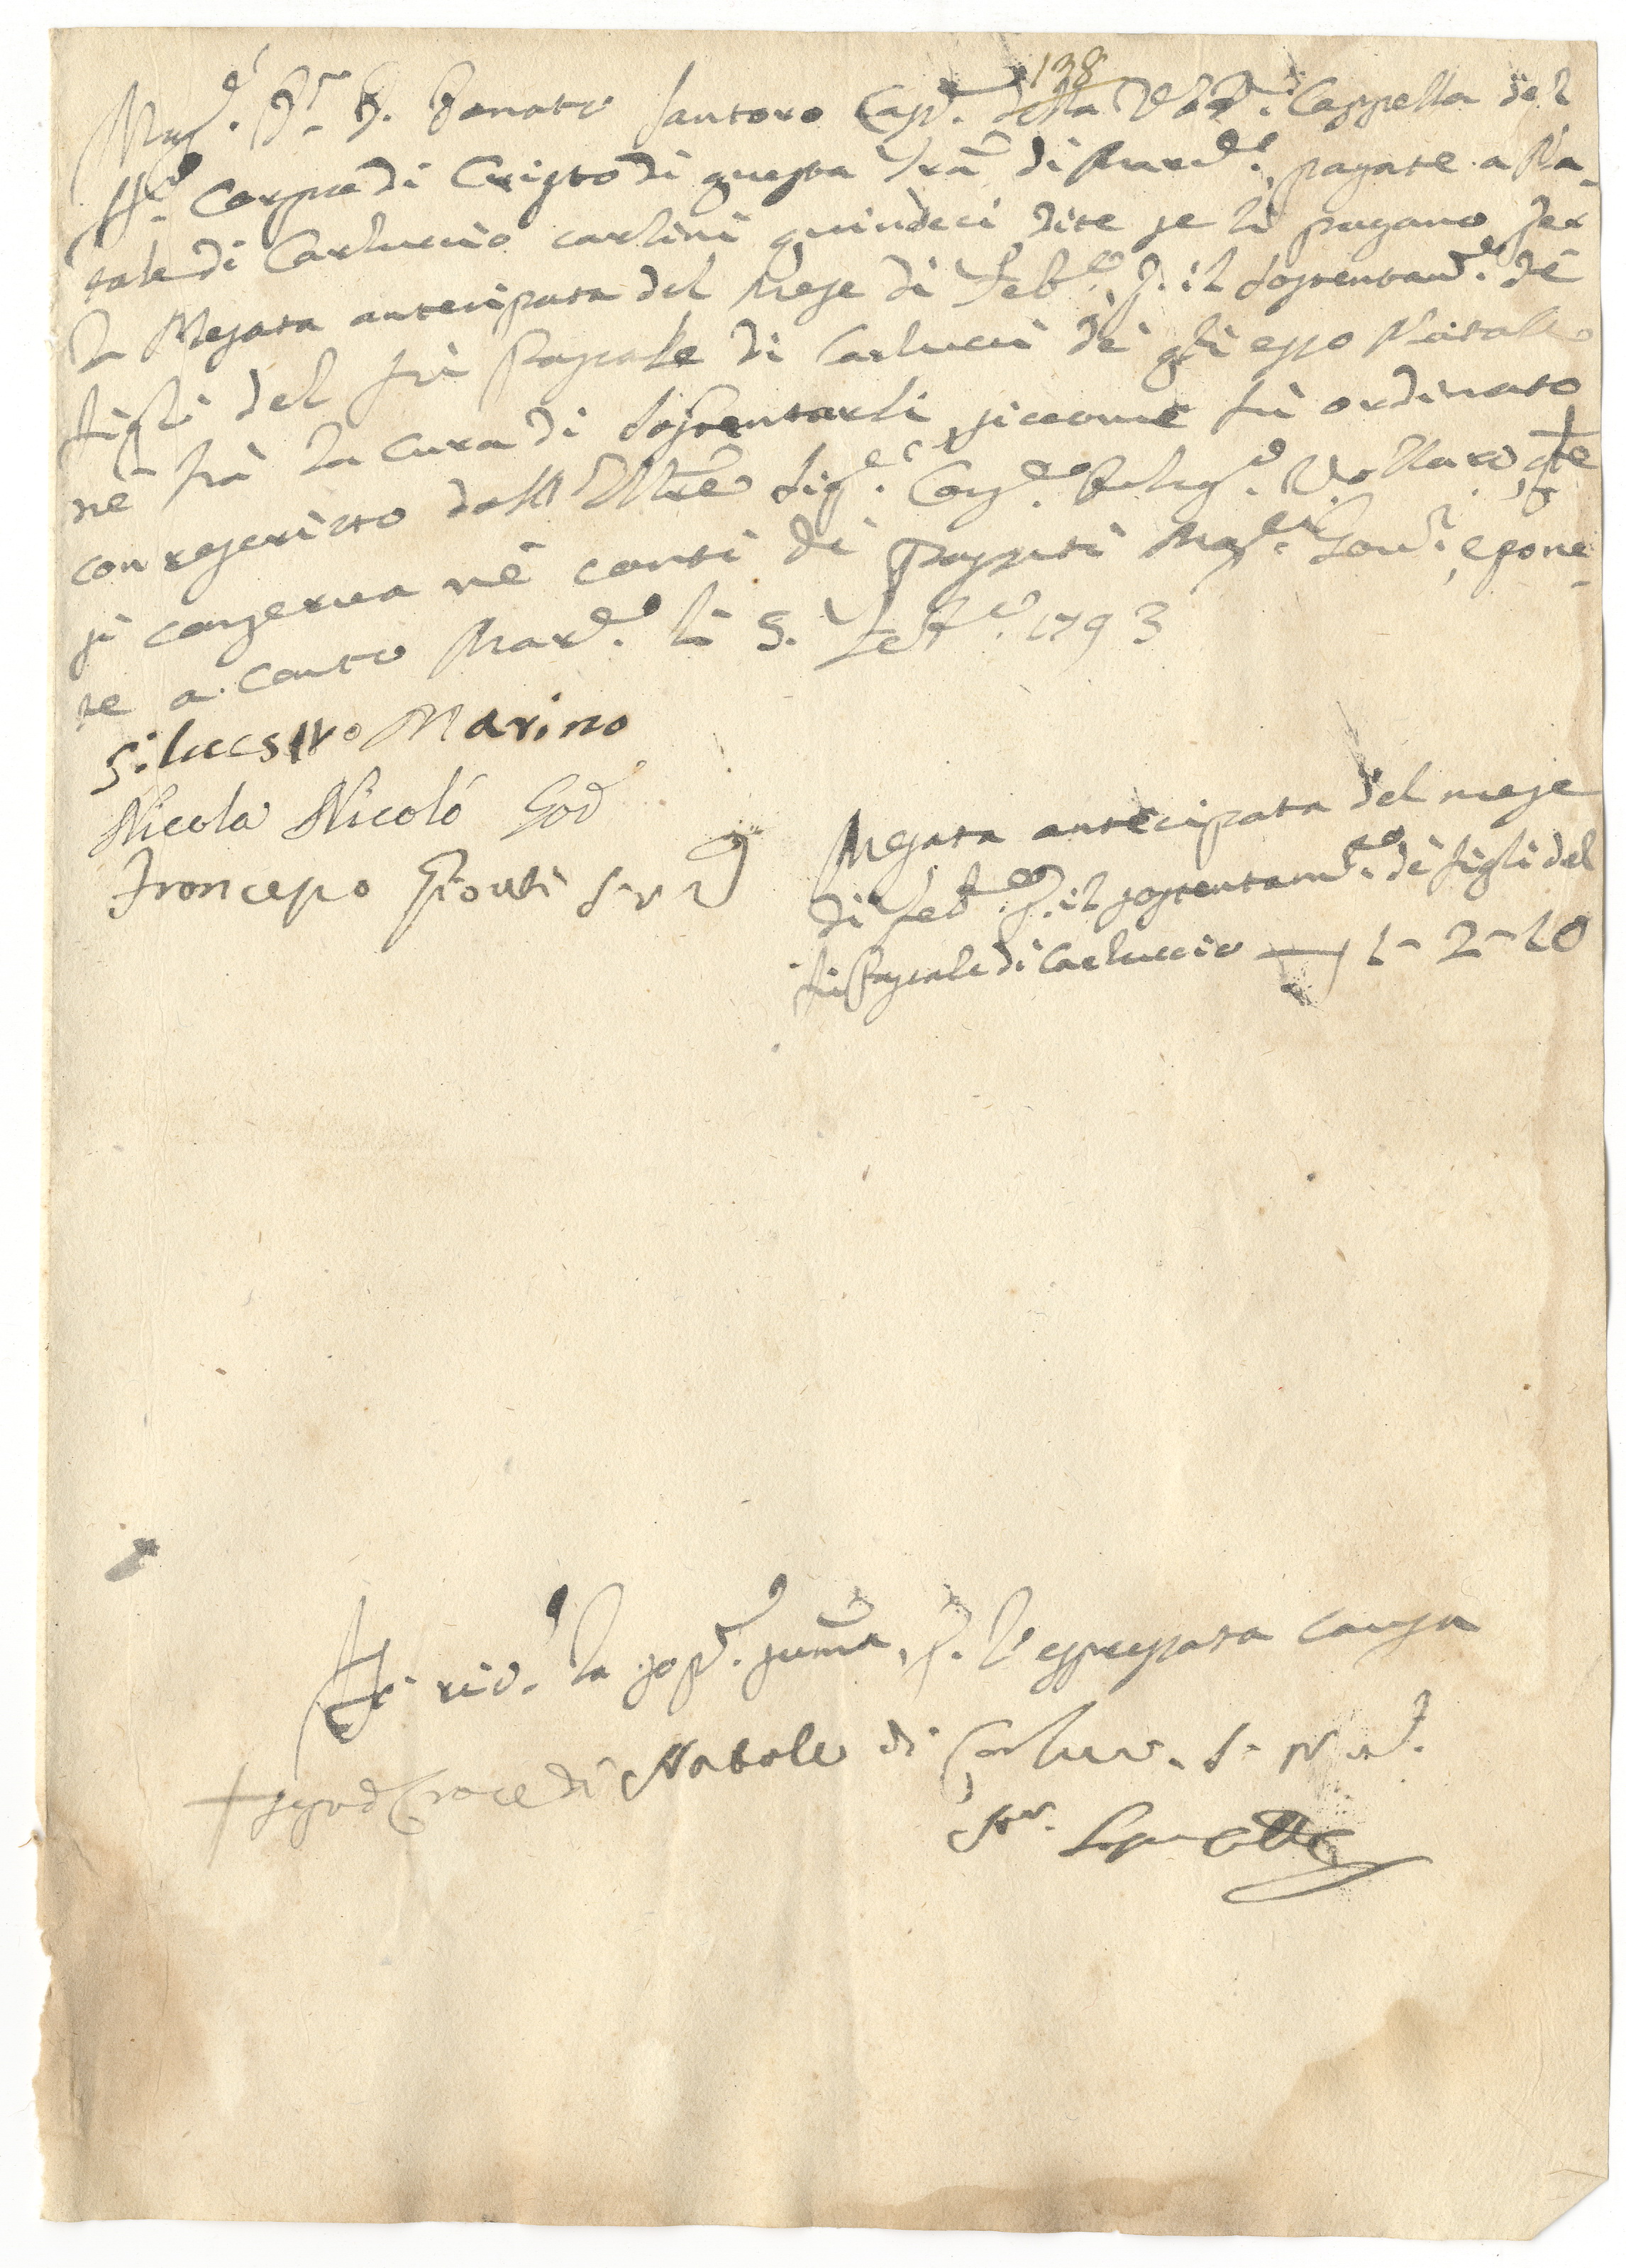 198
Mag.co D.r D. Donato Santoro Cass.re della Ven.le Cappella del
SS.mo Corpo di Cristo di questa Trã di Mard.e, pagate a Na-
tale di Carluccio carlini quindeci dite se li pagano per
la Mesata antecipata del Mese di Feb.o P. il sostentam.to dè
figli del fù Pasquale di Carlucci dè q̃li esso Natale
ne hà la cura di sostentarli, siccome fù ordinato
con rescritto dall' Ill.mo Sig.e Con.e Deleg.o Vollaro, che
si conserva nè conti di passati Mag.ci Gov.ri, e pone-
te a conto Mard.e li 5. Feb.o 1793
Siluestro Marino
Nicola Nicoló God
Francesco
Mesata antecipata del mese
di Feb.o P. il sostentam.to dè figli del
fù Pasquale di Carluccio — 1-2-10
Hò ric. la sop.a sum̃a, P. l'espressata causa
+ segno di Croce di Natale di Carlucc.